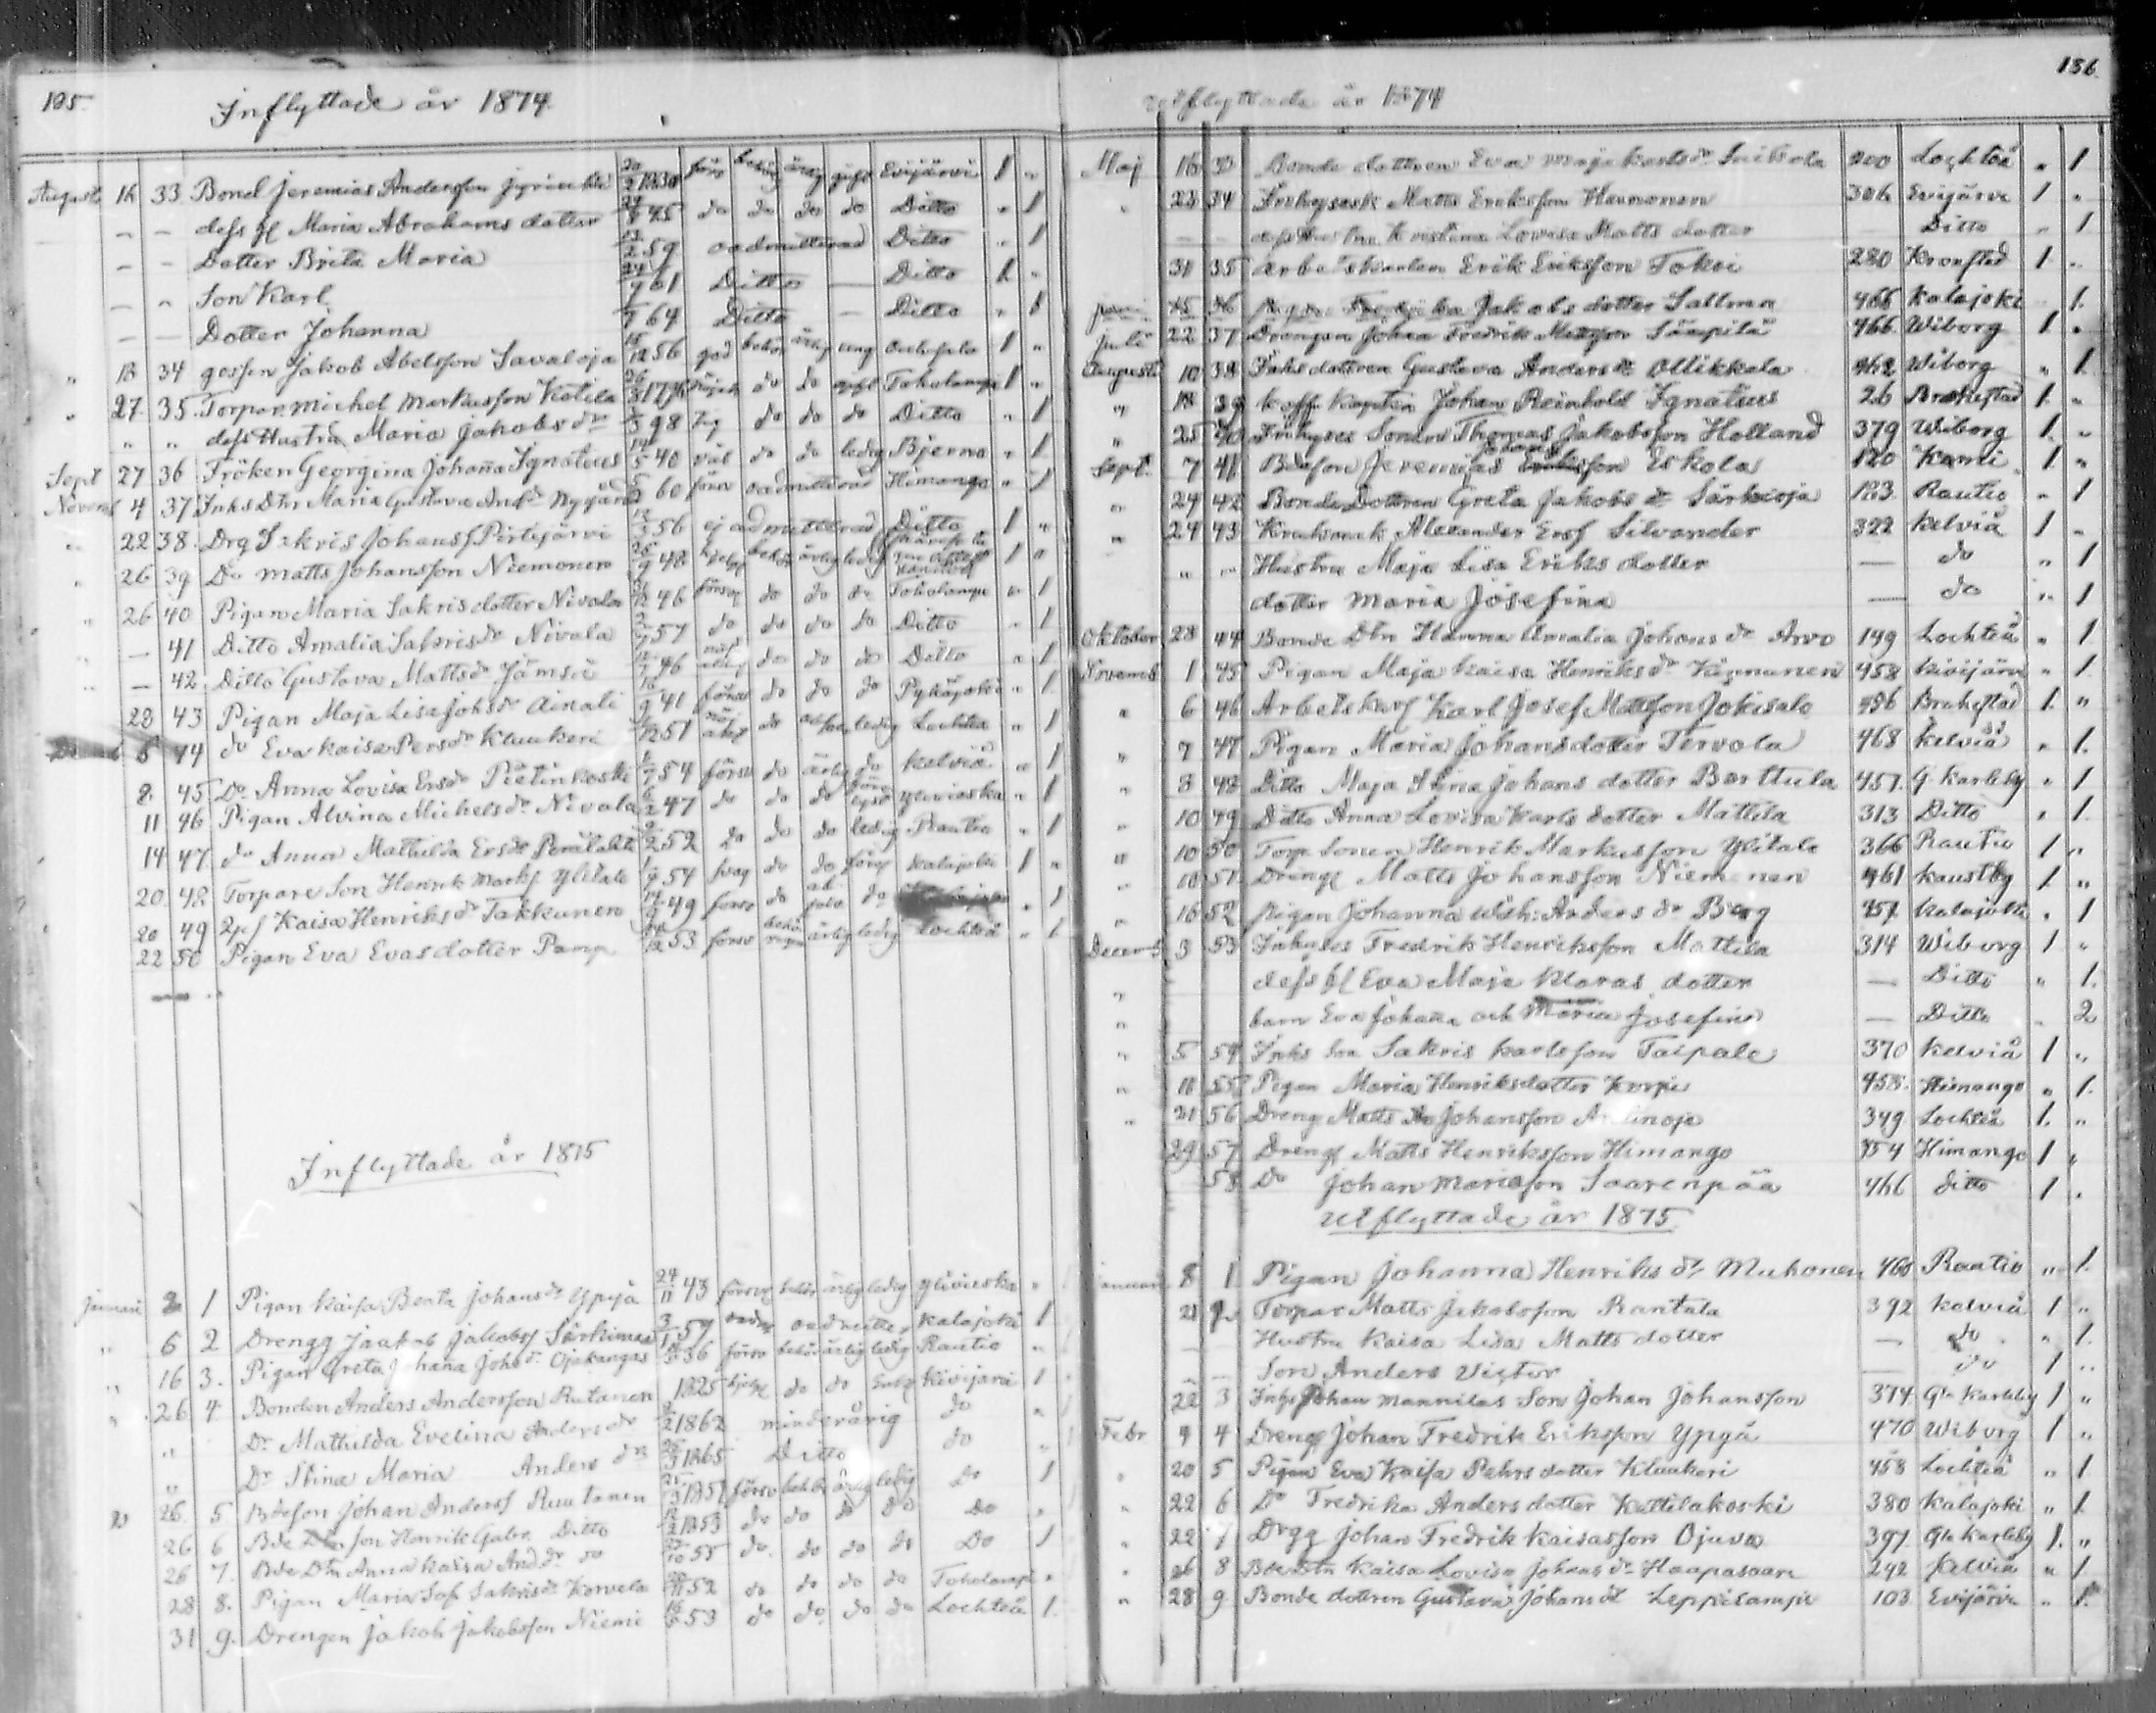 135.
Inflyttade år 1874.
August 16 33 Bond Jeremias Andersson 1830 förs behörig ärlig gift Evijärvi 1 "
— — dess h Maria Abrahams dotter 25 do do do do Ditto " 1
— — Dotter Brita Maria 59 oadmitterad Ditto " 1
— " Son Karl 61 Ditto — Ditto 1 "
— — Dotter Johanna 64 Ditto — Ditto " 1
" 18 34 gossen Jakob Abelsson Savaloja 56 god behör ärlig ung 1 "
" 27 35. Torpar. Michel Markusson Kotila do do Toholampi 1 "
" " dess Hustru Maria Jakobs dr 98 do do do Ditto " 1
Sept 27 36 Fröken Georgina Johaña Ignatius 40 väl do do ledig Bjerno " 1
Novemb 4 37 Inhs Dtr Maria Gustava 60 oadmitterad Himango " 1
" 22 38. Drg Sakris Johanss Pirtijärvi 56 ej admitterad Ditto 1 "
" 26 39 Do Matts Johansson Niemonen 48 behör ärlig ledig 1 "
" 26 40 Pigan Maria Sakris dotter Nivala 46 försv do do do Toholampi " 1
" — 41 Ditto Amalia Sakris dr Nivala 57 do do do do Ditto " 1
" — 42. Ditto Gustava Matts dr Jämsä 46 do do do Ditto " 1
23 43 Pigan Maja Lisa Johs dr Ainali 41 försv do do do Pyhäjoki " 1
5 44 do Eva Kaisa Pers dr Klaukeri 51 do ledig Lochteå " 1
8. 45 Do Anna Lovisa Ers dr Pietinkoski 54 försv do ärlig do Kelviå " 1
11 46 Pigan Alvina Michels dr Nivala 47 do do do Ylivieska " 1
14 47. do Anna Mathilda Ers dr 52 do do do ledig Rautio " 1
20 48 Torpare Son Henrik Marks Ylitalo 54 svag do do Kalajoki 1 "
20 49 Kaisa Henriks dr Takkunen 49 försv do do " 1
22 50 Pigan Eva Evas dotter Pamp 53 försv ärlig ledig Lochteå " 1
Inflyttade år 1875
Januari 2 1 Pigan Kaisa Beata Johans dr Ypyä 43 försv behör ärlig ledig Ylivieska "
" 6 2 Drengg Jaakob Jakobss 57 Kalajoki 1
" 16 3. Pigan Greta Johaña Johs dr Ojakangas 36 försv behör ärlig ledig Rautio "
" 26 4 Bonden Anders Andersson Rutanen 1825 do do Kivijärvi 1
" Dr Mathilda Evelina Anders dr 1862 minderårig do "
" Dr Stina Maria Anders dr 1865 Ditto do "
26. 5. Bdeson Johan Anderss Ruutanen 1851 försv behör ärlig ledig do 1
26 6 Bde Son Henrik Gabr. Ditto 1853 do do do do Do "
26 7. Bde Dtr Anna Kaisa And dr do 55 do. do do do Do 1
28 8. Pigan Maria Sof Sakris dr Korvela 52 do do do do Toholampi "
31 9. Drengen Jakob Jakobsson Niemi 53 do do do do Lochteå 1.
136.
Utflyttade år 1874
Maj 16 33 Bonde dottren Eva Maja Karls dr 200 Lochteå " 1
" 23 34 Matts Eriksson Haunonen 306 Evijärvi 1 "
— — dess Hustru Kristina Lovisa Matts dotter Ditto " 1
31 35 Arbetskarlen Erik Eriksson Tokoi 280 Kronstad 1 "
Juni 15 36 Pigan Fredrika Jakobs dotter Sallman 466 Kalajoki 1.
Juli 22 37 Drengen Johan Fredrik Mattsson Sämpilä 466. Wiborg 1. "
Augusti 10 38 Inhs dottren Gustava Anders dr Ollikkala 462 Wiborg " 1
" 18 39 Koff. Kaptein Johan Reinhold Ignatius 26 Brahestad 1. "
" 25 40 Inhyses Sonen Thomas Jakobsson Holland 379 Wiborg 1. "
Sept. 7 41 Bdeson Jeremias Johans Eskola 120 Kemi 1. "
" 24 42 Bonde Dottren Greta Jakobs dr Särkioja 183. Rautio " 1
" 24 43 Alexander Erss Silvander 322 Kelviå 1 "
" " Hustru Maja Lisa Eriks dotter — do " 1
dotter Maria Josefina — do " 1
Oktober 28 44 Bonde Dtn Hanna Amalia Johans dr Arvo 149 Lochteå " 1
Novemb 1 45 Pigan Maja Kaisa Henriks dr Kinnunen 458 Kivijärvi " 1
" 6 46 Arbetskarl Karl Josef Mattsson Jokisalo 456 Brahestad 1. "
" 7 47 Pigan Maria Johansdotter Tervola 468 Kelviå " 1.
" 8 48 Ditto Maja Stina Johans dotter Barttula 457. G. Karleby " 1
" 10 49 Ditto Anna Lovisa Karls dotter Mattila 313 Ditto " 1.
" 10 50 Torp. Sonen Henrik Markusson Ylitalo 366 Rautio 1 "
" 10 51 Drengs Matts Johansson Niemonen 461 Kaustby 1. "
" 16 52 Pigan Johanna Anders dr Berg 457. Kalajoki " 1
Decemb 3 53 Inhyses Fredrik Henriksson Mattila 314 Wiborg 1 "
" dess h Eva Maja Klaras dotter — Ditto " 1.
" barn Eva Johaña och Maria Josefina — Ditto 2
" 5 54 Inhs Son Sakris Karlsson Taipale 370 Kelviå 1 "
" 11 55 Pigan Maria Henriksdotter Korpi 458. Himango " 1.
" 21 56 Dreng Matts Johansson 349 Lochteå 1. "
29 57 Drengs Matts Henriksson Himango 454 Himango 1 "
58 Do Johan Mariasson Saarenpää 466 ditto 1 "
Utflyttade år 1875
Januari 8 1 Pigan Johanna Henriks dr Muhonen 460 Rautio " 1.
21 2 Torpar Matts Jakobsson Rantala 392 Kelviå 1 "
— Hustru Kaisa Lisa Matts dotter — do " 1.
— Son Anders Victor — do 1 "
22 3 Inhs Johan Mannilas Son Johan Johansson 374. Gla Karleby 1 "
Febr 4 4 Drengs Johan Fredrik Eriksson Ypyä 470 Wiborg 1 "
" 20 5 Pigan Eva Kaisa Pehrs dotter Klaukeri 458 Lochteå " 1
" 22 6 Do Fredrika Anders dotter Kattilakoski 380 Kalajoki " 1.
" 22 7 Drgg Johan Fredrik Kaisasson Ojuva 397. Gla Karleby 1. "
" 26 8 Bde Dtn Kaisa Lovisa Johans dr Haapasaari 242 Kelviå " 1
" 28 9 Bonde dottren Gustava Johans dr Leppilampi 103 Evijärvi " 1.